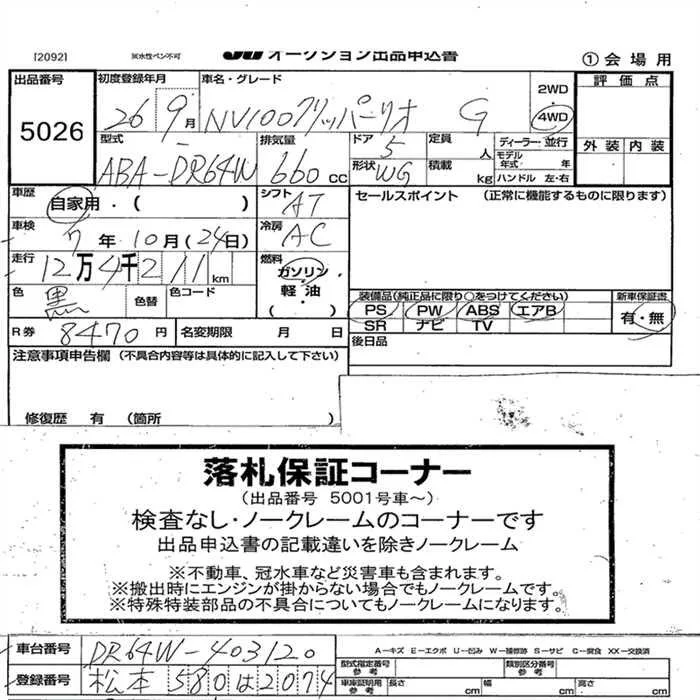 [2092] 油水性ペン不可 JU オークション出品申込書 ①会場用
出品番号 初度登録年月 車名・グレード 2WD 評価点
5026 26 9月 NV100クリッパーリオ G 4WD
型式 排気量 ドア 定員 ディーラー・並行 外装 内装
ABA-DR64W 660cc 5 人 モデル年式 年
形状 WG 積載 kg ハンドル 左・右
車歴 自家用・( ) シフト AT セールスポイント (正常に機能するものに限ります)
車検 7年10月(24日) 冷房 AC
走行 12万4千211km 燃料 ガソリン
色 黒 色替 色コード 軽・油 ( ・ )
装備品(純正品に限り○をつけてください) 新車保証書
PS PW ABS エアB 有・無
SR ナビ TV
R券 8470円 名変期限 月 日 後日品
注意事項申告欄 (不具合内容等は具体的に記入して下さい)
修復歴 有 (箇所 )
落札保証コーナー
(出品番号 5001号車~)
検査なし・ノークレームのコーナーです
出品申込書の記載違いを除きノークレーム
※不動車、冠水車など災害車も含まれます。
※搬出時にエンジンが掛からない場合でもノークレームです。
※特殊特装部品の不具合についてもノークレームになります。
A-キズ E-エクボ U-凹み W-補修跡 S-サビ C-腐食 XX-交換済
車台番号 DR64W-403120 型式指定番号参考 類別区分番号参考
登録番号 松本580は2074 車庫証明用参考 長さ cm 幅 cm 高さ cm